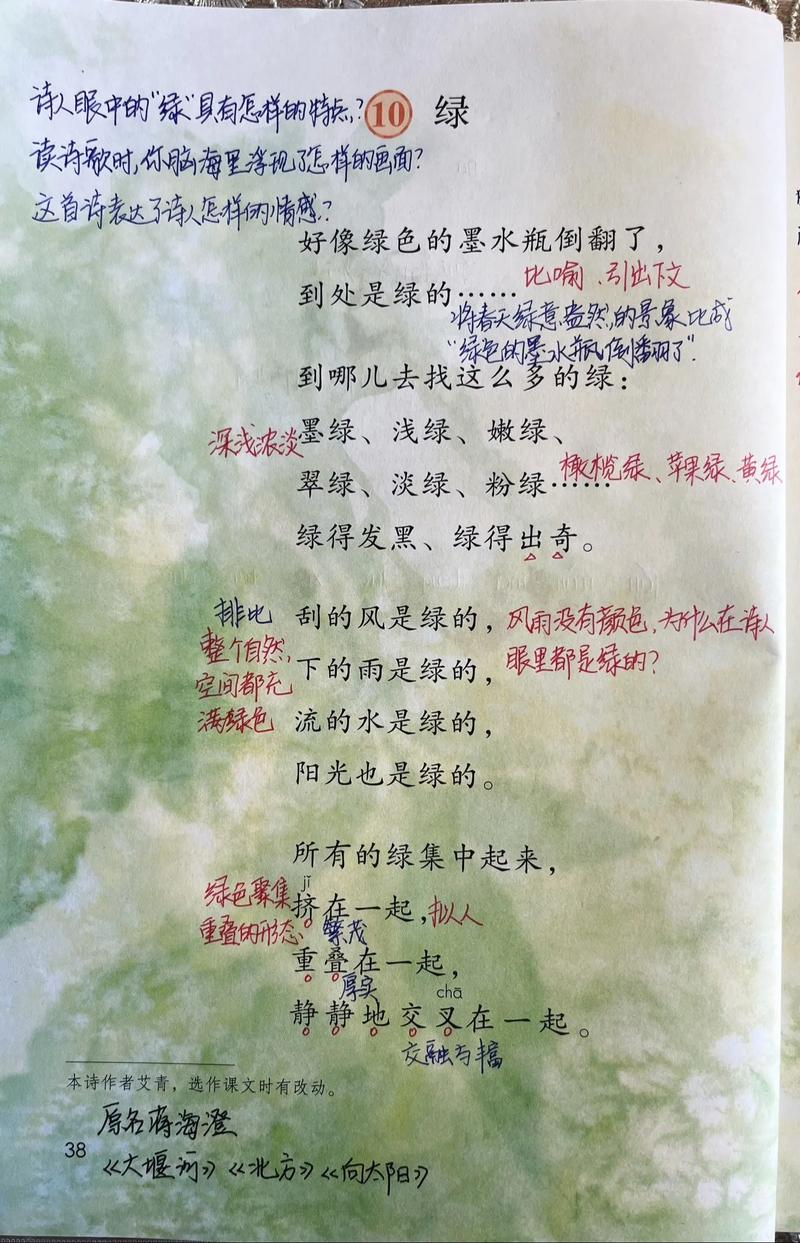 诗人眼中的“绿”具有怎样的特点？
⑩ 绿
读诗歌时，你脑海里浮现了怎样的画面？
这首诗表达了诗人怎样的情感？
好像绿色的墨水瓶倒翻了，
到处是绿的……
比喻、引出下文
将春天绿意盎然的景象比成
“绿色的墨水瓶倒翻了”.
到哪儿去找这么多的绿：
深浅浓淡
墨绿、浅绿、嫩绿、
翠绿、淡绿、粉绿……
橄榄绿、苹果绿、黄绿
绿得发黑、绿得出奇。
排比
整个自然，
空间都充
满绿色
刮的风是绿的，
下的雨是绿的，
流的水是绿的，
阳光也是绿的。
风雨没有颜色，为什么在诗人
眼里都是绿的？
所有的绿集中起来，
绿色聚集
重叠的形态、
jǐ
挤在一起，
拟人
繁茂
重叠在一起，
厚实
chā
静静地交叉在一起。
交融与丰富
本诗作者艾青，选作课文时有改动。
原名蒋海澄
38
《大堰河》《北方》《向太阳》